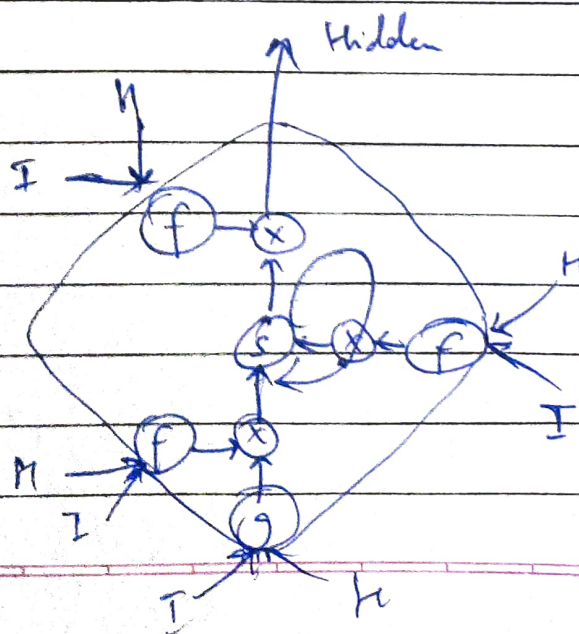 Hidden
H
I
f x
H
S x f
I
f x
H
I
g
I H